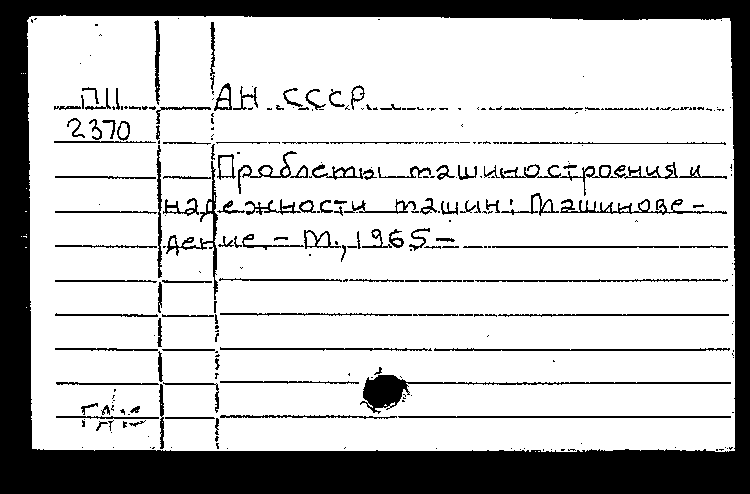 П11
АН СССР
2370
Проблемы машиностроения и
надежности машин: Машинове-
дение. - М., 1965 -